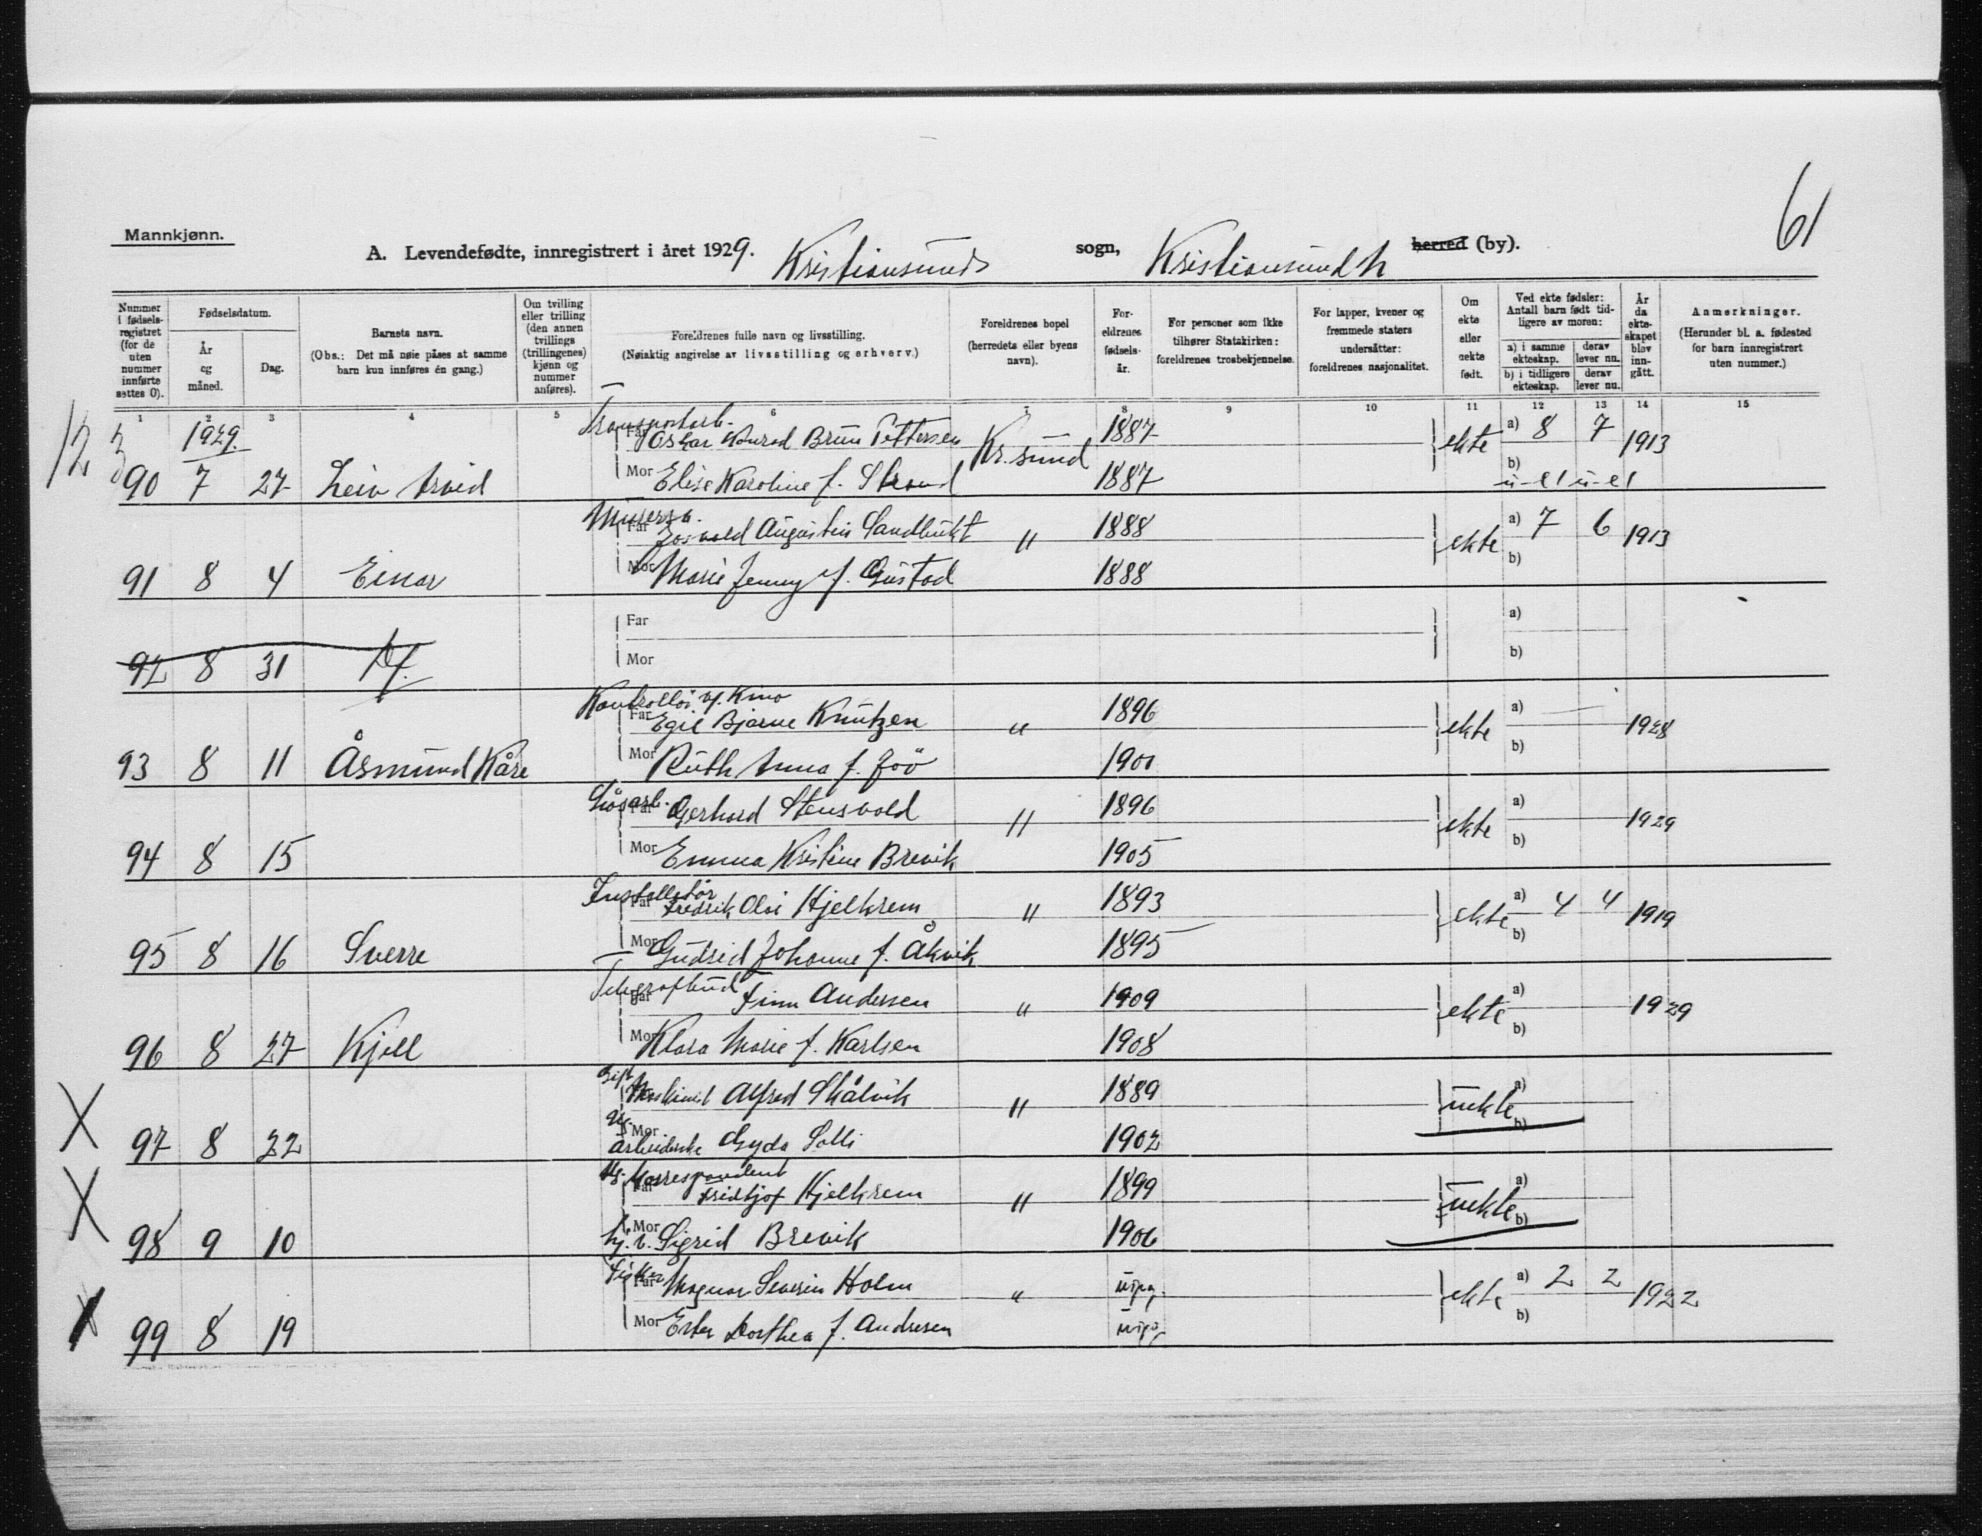 61
Mannkjønn.
A. Levendefødte, innregistrert i året 1929. Kristiansunds sogn, Kristiansund N herred (by).
Nummer i fødsels-registret (for de uten nummer innførte settes 0).
Fødselsdatum.
År og måned.
Dag.
Barnets navn.
(Obs.: Det må nøie påses at samme barn kun innføres én gang.)
Om tvilling eller trilling (den annen tvillings (trillingenes) kjønn og nummer anføres).
Foreldrenes fulle navn og livsstilling.
(Nøiaktig angivelse av livsstilling og erhverv.)
Foreldrenes bopel (herredets eller byens navn).
For-eldrenes fødsels-år.
For personer som ikke tilhører Statskirken: foreldrenes trosbekjennelse.
For lapper, kvener og fremmede staters undersåtter: foreldrenes nasjonalitet.
Om ekte eller uekte født.
Ved ekte fødsler: Antall barn født tid-ligere av moren:
a) i samme ekteskap. derav lever nu.
b) i tidligere ekteskap. derav lever nu.
År da ekte-skapet blev inn-gått.
Anmerkninger.
(Herunder bl. a. fødested for barn innregistrert uten nummer.)
1 2 3 4 5 6 7 8 9 10 11 12 13 14 15
12 3
1929.
Transportarb.
Far Oskar Konrad Brun Pettersen Kr.sund 1887 ekte a) 8 7 1913
90 7 27 Leiv Arvid Mor Elise Karoline f. Strand 1887 b) u-el u-el
Murersv.
Far Augustin Sandbukt " 1888 ekte a) 7 6 1913
91 8 4 Einar Mor Marie Jenny f. Gustad 1888 b)
Far a)
92 8 31 Mor b)
Kontrollør v/ Kino
Far Egil Bjarne Knutzen " 1896 ekte a) 1928
93 8 11 Åsmund Kåre Mor Ruth Anna f. 1901 b)
Løsarb.
Far Gerhard Stensvold " 1896 ekte a) 1929
94 8 15 Mor Emma Kristine Brevik 1905 b)
Installatør
Far Fredrik Olai Hjelkrem " 1893 ekte a) 4 4 1919
95 8 16 Sverre Mor Gudrid Johanne f. Åkvik 1895 b)
Telegrafbud
Far Finn Andersen " 1909 ekte a) 1929
96 8 27 Kjell Mor Klara Marie f. Karlsen 1908 b)
Gift
Maskinist Alfred Skålvik " 1889 uekte a)
X
Ug. Mor
97 8 22 arbeiderske Gyda Solli 1902 b)
Ug. Korrespondent
X Far Fridtjof Hjelkrem " 1899 uekte a)
98 9 10 Mor Sigrid Brevik 1906 b)
Fisker
Far Magnar Severin Holm " uopg. ekte a) 2 2 1922
X 99 8 19 Mor Ester Dorthea f. Andresen uopg. b)